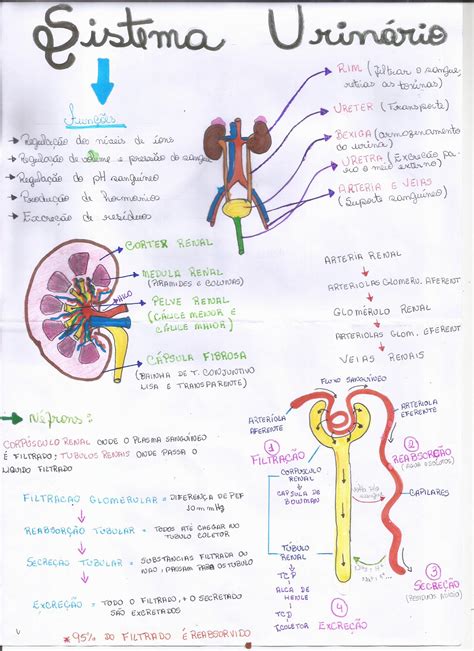 Sistema Urinário
Funções
Regulação dos níveis de íons
Regulação de volume e pressão do sangue
Regulação do pH sanguíneo
Produção de hormônios
Excreção de resíduos
RIM (filtrar o sangue,
retirar as toxinas)
URETER (Transporte)
BEXIGA (armazenamento
da urina)
URETRA (Excreção pa-
ra o meio externo)
ARTÉRIA E VEIAS
(Suporte sanguíneo)
CORTEX RENAL
MEDULA RENAL
(PIRAMIDES E COLUNAS)
HILO
PELVE RENAL
(CÁLICE MENOR E
CÁLICE MAIOR)
CÁPSULA FIBROSA
(BAINHA DE T. CONJUNTIVO
LISA E TRANSPARENTE)
ARTERIA RENAL
ARTERIOLAS GLOMERU. AFERENT
GLOMEROLO RENAL
ARTERIOLAS GLOM. EFERENT
VEIAS RENAIS
Néfrons:
CORPÚSCULO RENAL ONDE O PLASMA SANGUÍNEO
É FILTRADO; TUBULOS RENAIS ONDE PASSA O
LÍQUIDO FILTRADO
FILTRAÇÃO GLOMERULAR = DIFERENÇA DE PEF
10 mmHg
REABSORÇÃO TUBULAR = TODOS ATÉ CHEGAR NO
TUBO COLETOR
SECREÇÃO TUBULAR = SUBSTANCIAS FILTRADA OU
NÃO, PASSAM PARA OS TUBULO
EXCREÇÃO = TODO O FILTRADO, + O SECRETADO
SÃO EXCRETADOS
*95% DO FILTRADO É REABSORVIDO
FLUXO SANGUÍNEO
ARTERÍOLA
AFERENTE
ARTERIOLA
EFERENTE
1
FILTRAÇÃO
CORPÚSCULO
RENAL
CAPSULA DE
BOWMAN
TÚBULO
RENAL
TCP
ALCA DE
HENLE
TCD
T.COLETOR
2
REABSORÇÃO
Volta pro
sangue
CAPILARES
3
SECREÇÃO
4
EXCREÇÃO